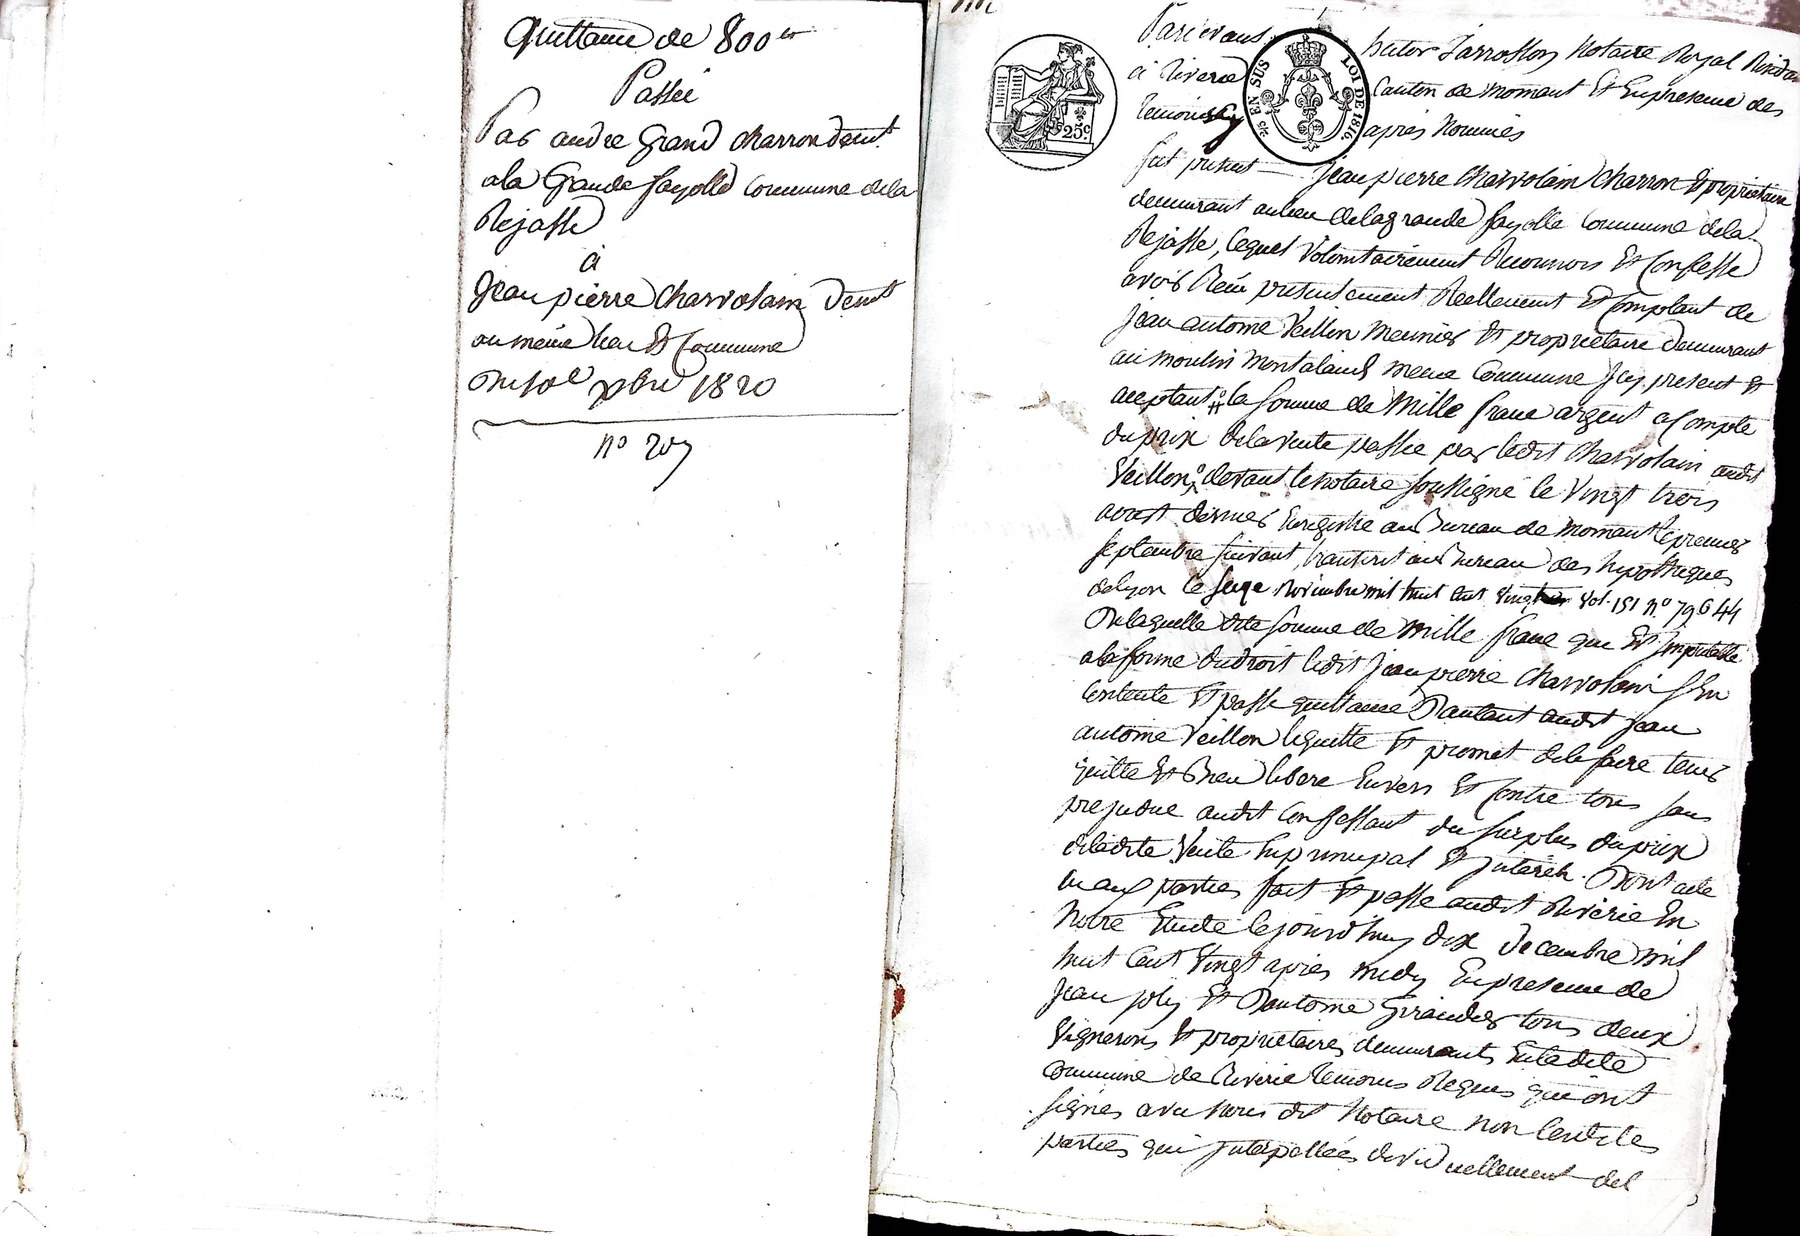 Quittance de 800 tt
Passée
Par andre Grand charron demt
a la Grande fayolle Commune de la
Rejasse
à
Jean pierre Charvolain demt
au même lieu Et Commune
Du 10e xbre 1820
n° 207
Pardevant hutor Jarrosson Notaire Royal
à Riverie Canton de mornant Et En presence des
temoins cy après Nommés
25c.
EN SUS
LOI DE 1816.
fut présent Jean pierre Charvolain Charron Et proprietaire
demeurant au lieu de la grande fayolle Commune de la
Rejasse, Lequel Volontairement Reconnois Et Confesse
avoir Reçu presentement Reellement Et Comptant de
jean antoine Veillon Meunier Et proprietaire demeurant
au moulin montaland meme Commune Icy present Et
acceptant la somme de Mille franc argent a Compte
du prix de la vente passée par ledit Charvolain audit
Veillon devant le notaire soussigné le Vingt trois
aoust dernier Enregistré au Bureau de mornant le premier
septembre suivant, transcrit au Bureau des hypothèques
de lyon le seize Novembre mil huit cent Vingt Vol. 151 n° 79 644
De laquelle dite somme de Mille franc que Est Imputable
a la forme du droit ledit Jean pierre Charvolain S'En
Contente Et passe quittance D'autant audit jean
antoine Veillon le quitte Et promet de le faire tenir
quitte Et Bien libéré Envers Et Contre tous sans
prejudice audit Confessant du surplus du prix
de ladite Vente En principal Et Interêts. Dont acte
lu aux parties fait Et passé audit Riverie En
Notre Etude le jourd'huy dix Decembre mil
huit Cent Vingt après midy En presence de
Jean joly Et D'antoine Giraudier tous deux
Vignerons Et proprietaires demeurants En ladite
Commune de Riverie temoins Requis qui ont
signés avec Nous dit Notaire non lesdites
parties qui Interpellées